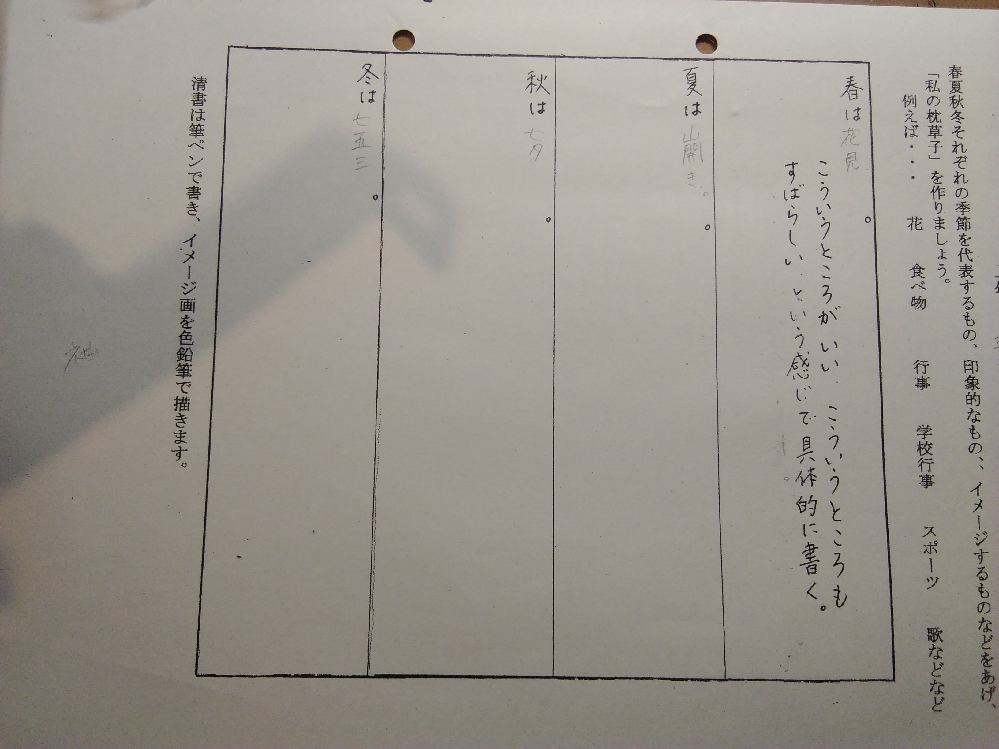 春夏秋冬それぞれの季節を代表するもの、印象的なもの、、イメージするものなどをあげ、
「私の枕草子」を作りましょう。
例えば・・・ 花 食べ物 行事 学校行事 スポーツ 歌などなど
春は花見。
こういうところがいい、こういうところも
すばらしい、という感じで具体的に書く。
夏は山開き。。
秋は七夕。
冬は七五三。
清書は筆ペンで書き、イメージ画を色鉛筆で描きます。